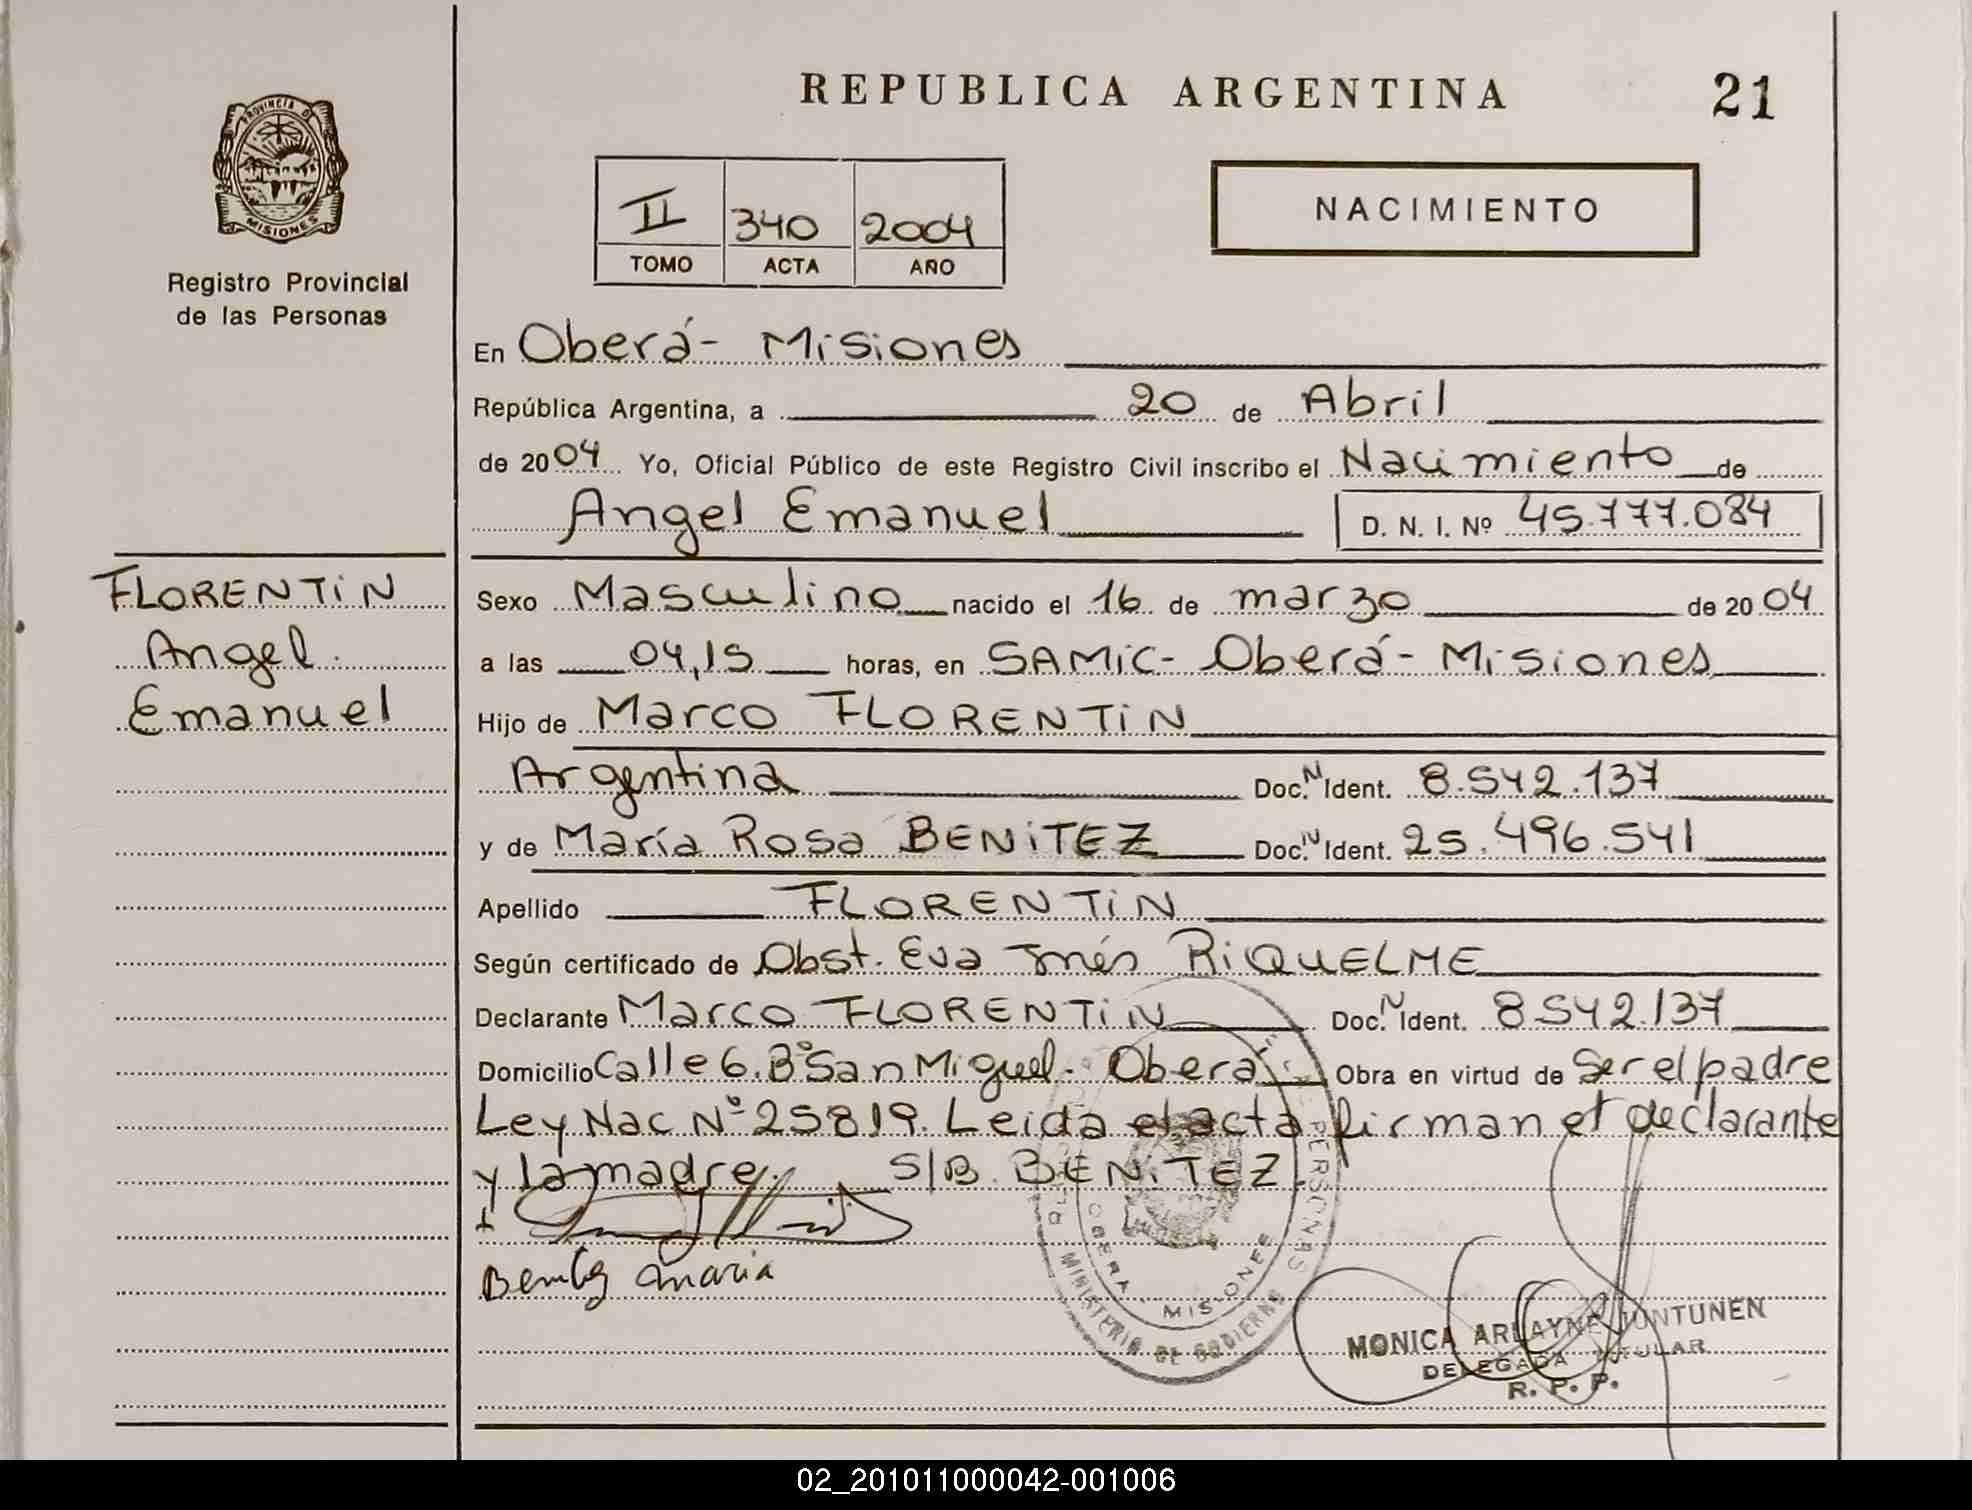 REPUBLICA ARGENTINA
21
PROVINCIA D
MISIONES
Registro Provincial
de las Personas
II 340 2004
TOMO ACTA AÑO
NACIMIENTO
En Oberá- Misiones
República Argentina, a 20 de Abril
de 2004 Yo, Oficial Público de este Registro Civil inscribo el Nacimiento de
Angel Emanuel D. N. I. Nº 45.777.084
FLORENTIN
Angel
Emanuel
Sexo Masculino nacido el 16 de marzo de 2004
a las 04,15 horas, en SAMIC- Oberá- Misiones
Hijo de Marco FLORENTIN
Argentina Doc. N Ident. 8.542.137
y de María Rosa BENITEZ Doc. N Ident. 25.496.541
Apellido FLORENTIN
Según certificado de Obst. Eva Inés RIQUELME
Declarante Marco FLORENTIN Doc. N Ident. 8.542.137
Domicilio Calle 6. Bº San Miguel. Oberá Obra en virtud de Ser el padre
Ley Nac Nº 25819. Leida el acta firman el declarante
y la madre. S/B. BENITEZ.
Benitez maria
PERSONAS
OBERA MISIONES
MINISTERIO DE GOBIERNO
MONICA ARLAYNE JUNTUNEN
DELEGADA TITULAR
R. P. P.
02_201011000042-001006